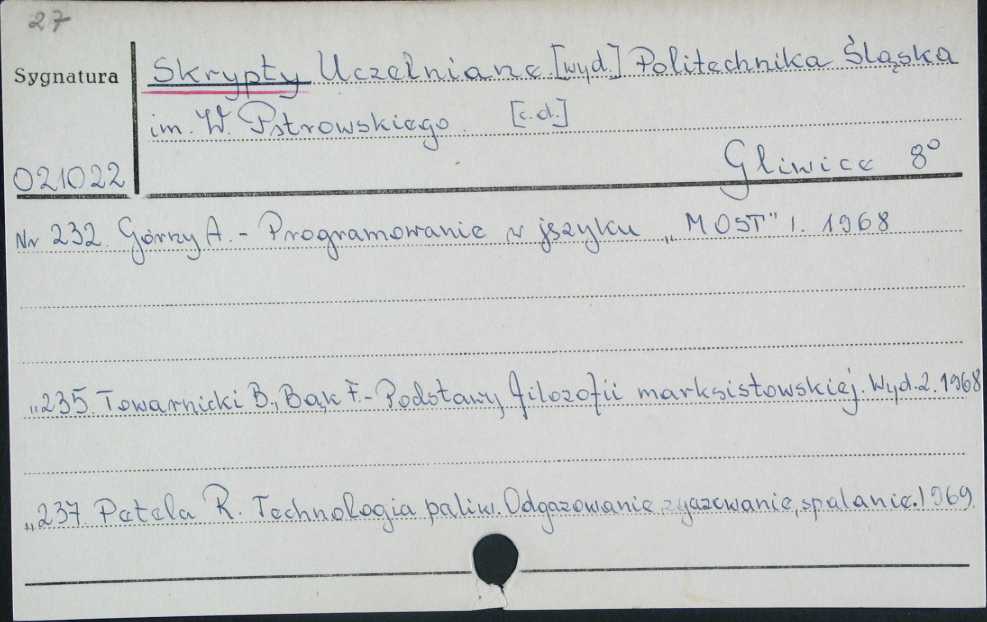 27
Sygnatura
Skrypty Uczelniane [wyd.] Politechnika Śląska
im. W. Pstrowskiego. [c.d.]
021022
Gliwice 8°
Nr 232. Górzy A. - Programowanie w języku „MOST" 1. 1968
„235. Towarnicki B., Bąk F. - Podstawy filozofii marksistowskiej. Wyd. 2. 1968
„237. Petela R. Technologia paliw. Odgazowanie, zgazowanie, spalanie. 1969.